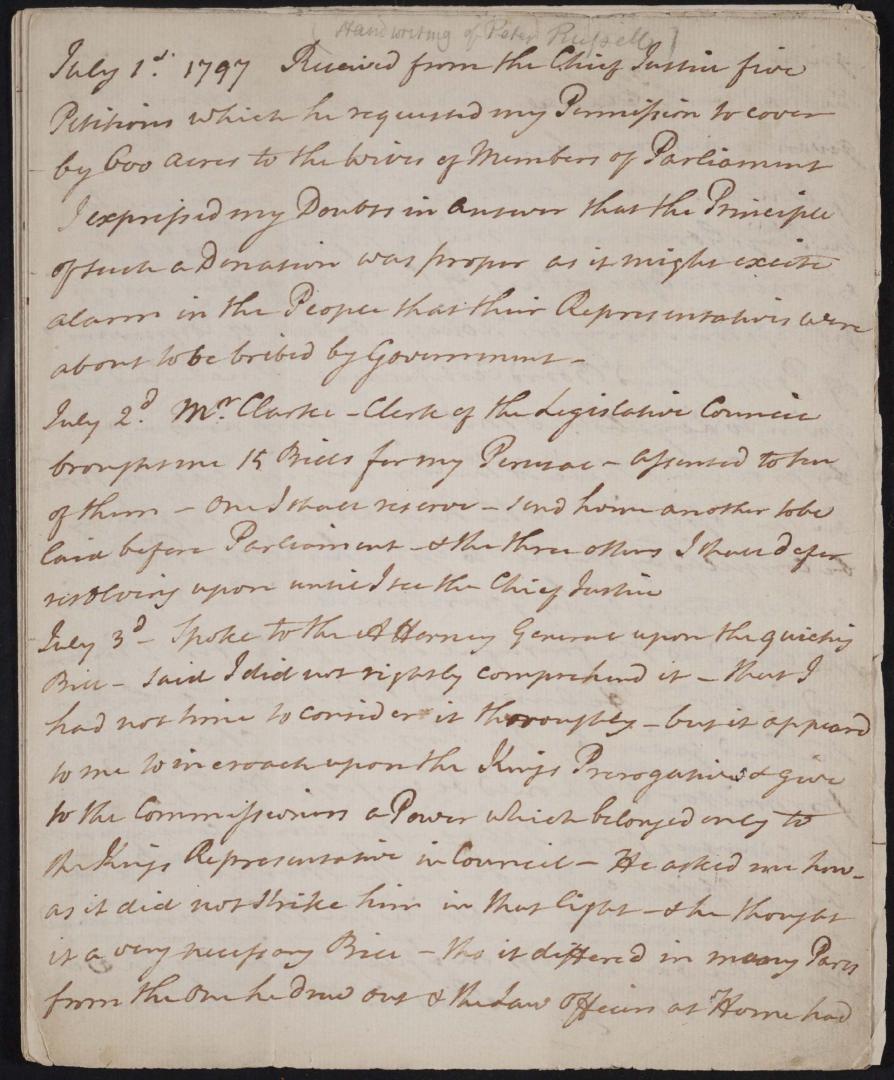 (Handwriting of Peter Russell)
July 1st. 1797 Received from the Chief Justice five
Petitions which he requested my Permission to cover
by 600 acres to the Wives of Members of Parliament
I expressed my Doubts in answer that the Principle
of such a Donation was proper as it might excite
alarm in the People that their Representatives were
about to be bribed by Government –
July 2d. Mr. Clarke – Clerk of the Legislative Council
brought me 15 Bills for my Perusal – assented to ten
of them – one I shall reserve – send home another to be
laid before Parliament – & the three others I shall defer
resolving upon until I see the Chief Justice
July 3d – Spoke to the Attorney General upon the quieting
Bill – said I did not rightly comprehend it – that I
had not time to consider it thoroughly – but it appeard
to me to incroach upon the Kings Prerogative & give
to the Commissioners a Power which belonged only to
the Kings Representative in Council – He asked me how –
as it did not strike him in that light – & he thought
it a very necessary Bill – tho it differed in many Parts
from the one he drew out & the Law Officers at Home had